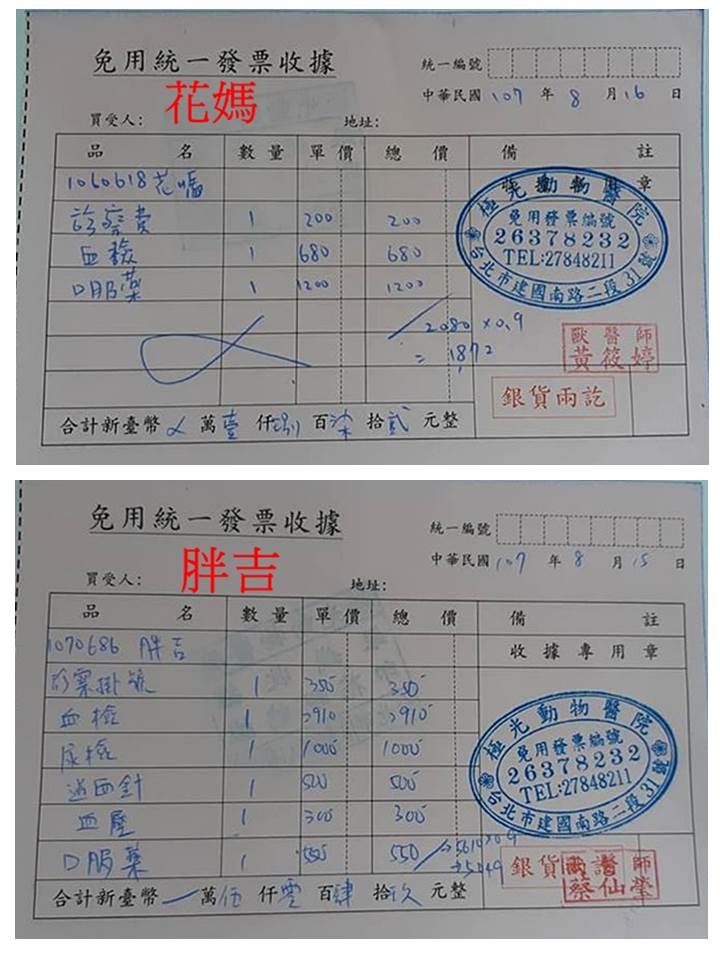 免用統一發票收據
統一編號
中華民國 107 年 8 月 16 日
花媽
買受人：
地址：
品名 數量 單價 總價 備註
1060618 花媽
收據專用章
診察費 1 200 200
血檢 1 680 680
口服藥 1 1200 1200
極光動物醫院
免用發票編號
26378232
TEL:27848211
台北市建國南路二段31號
2080 x0.9
= 1872
獸醫師
黃筱婷
銀貨兩訖
合計新臺幣 萬壹仟捌百柒拾貳元整
免用統一發票收據
統一編號
中華民國 107 年 8 月 15 日
胖吉
買受人：
地址：
品名 數量 單價 總價 備註
1070686 胖吉
收據專用章
掛號 1 350 350
血檢 1 2910 2910
尿檢 1 1000 1000
1 500 500
血壓 1 300 300
口服藥 1 550 550
極光動物醫院
免用發票編號
26378232
TEL:27848211
台北市建國南路二段31號
5610x0.9
5049
銀貨
獸醫師
蔡仙肇
合計新臺幣 萬伍仟零百肆拾玖元整